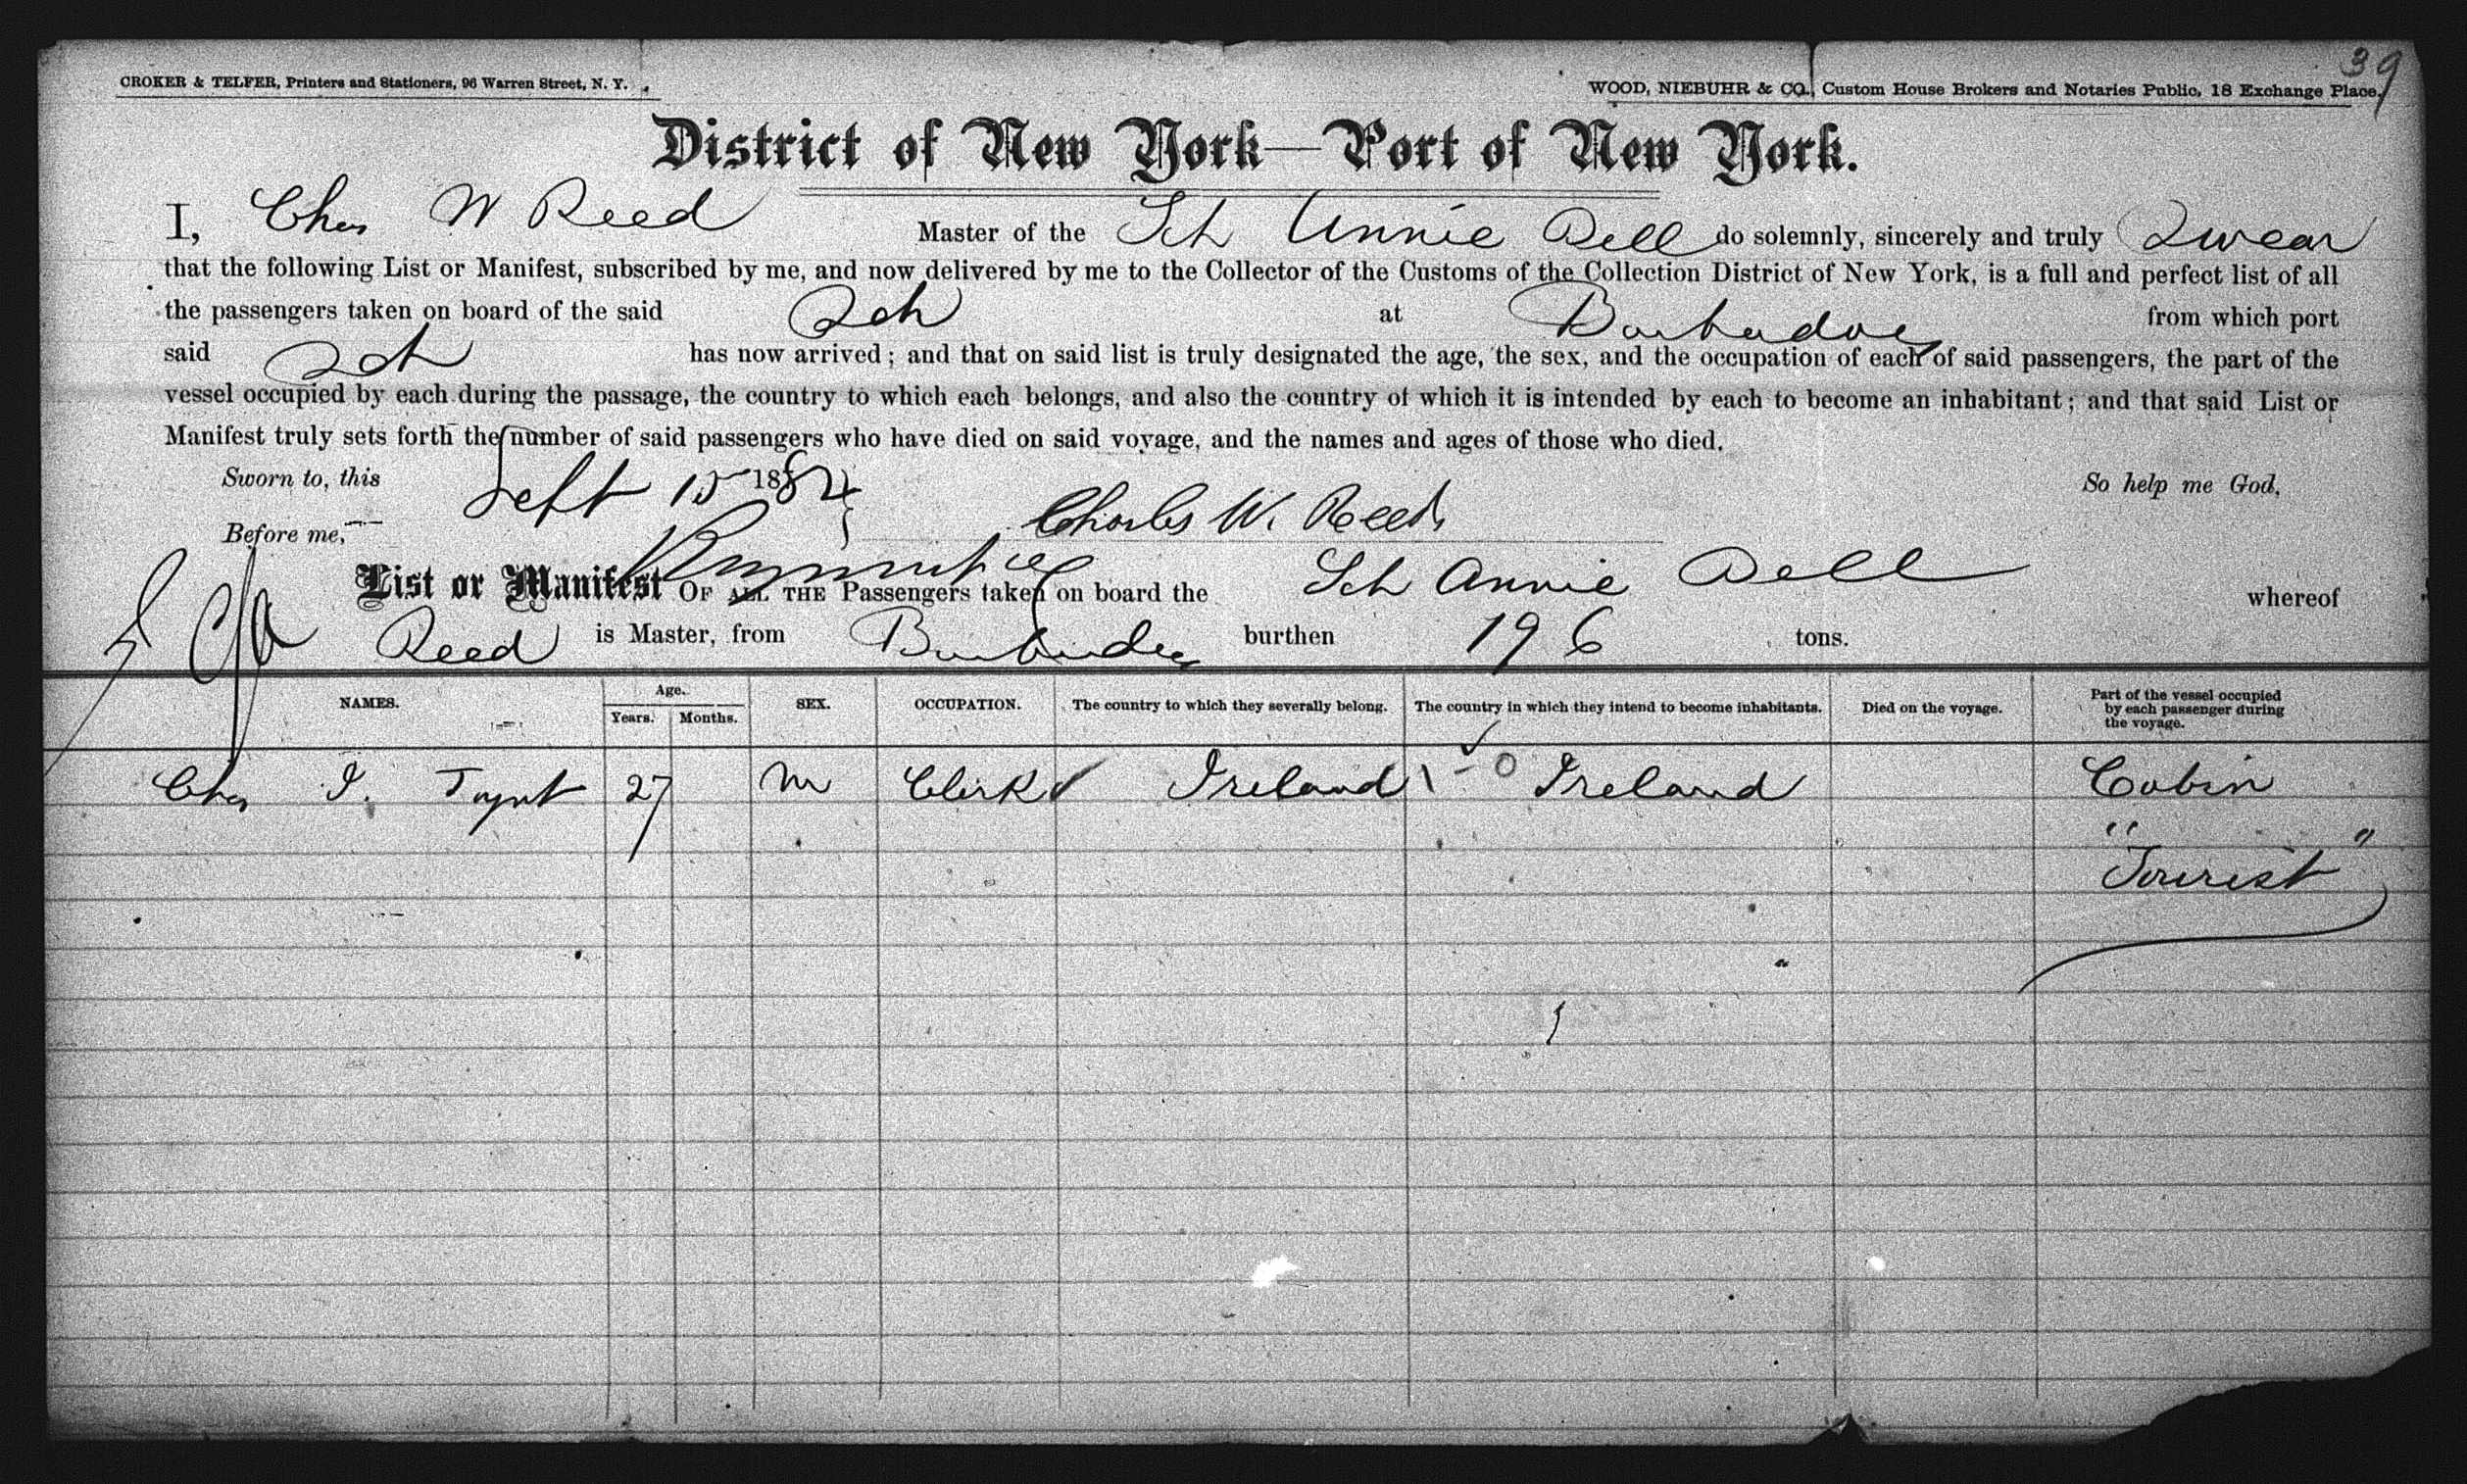 39
CROKER & TELFER, Printers and Stationers, 96 Warren Street, N. Y.
WOOD, NIEBUHR & CO., Custom House Brokers and Notaries Public, 18 Exchange Place.
District of New York—Port of New York.
I, Chas W Reed Master of the Sch Annie Bell do solemnly, sincerely and truly Swear
that the following List or Manifest, subscribed by me, and now delivered by me to the Collector of the Customs of the Collection District of New York, is a full and perfect list of all
the passengers taken on board of the said Sch at Barbadoes from which port
said Sch has now arrived; and that on said list is truly designated the age, the sex, and the occupation of each of said passengers, the part of the
vessel occupied by each during the passage, the country to which each belongs, and also the country of which it is intended by each to become an inhabitant; and that said List or
Manifest truly sets forth the number of said passengers who have died on said voyage, and the names and ages of those who died.
Sworn to, this Sept 15 1884 So help me God,
Before me, Charles W. Reed
List or Manifest OF ALL THE Passengers taken on board the Sch Annie Bell whereof
Reed is Master, from Barbadoes burthen 196 tons.
NAMES. Age. Years. Months. SEX. OCCUPATION. The country to which they severally belong. The country in which they intend to become inhabitants. Died on the voyage. Part of the vessel occupied by each passenger during the voyage.
Chas I. Taynt 27 M Clerk Ireland 1 - 0 Ireland Cabin
" "
Tourist